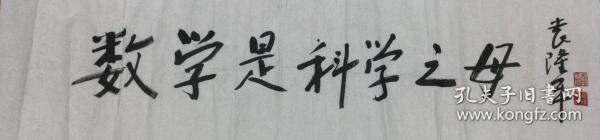 数学是科学之母
袁隆平
孔夫子旧书网
www.kongfz.com